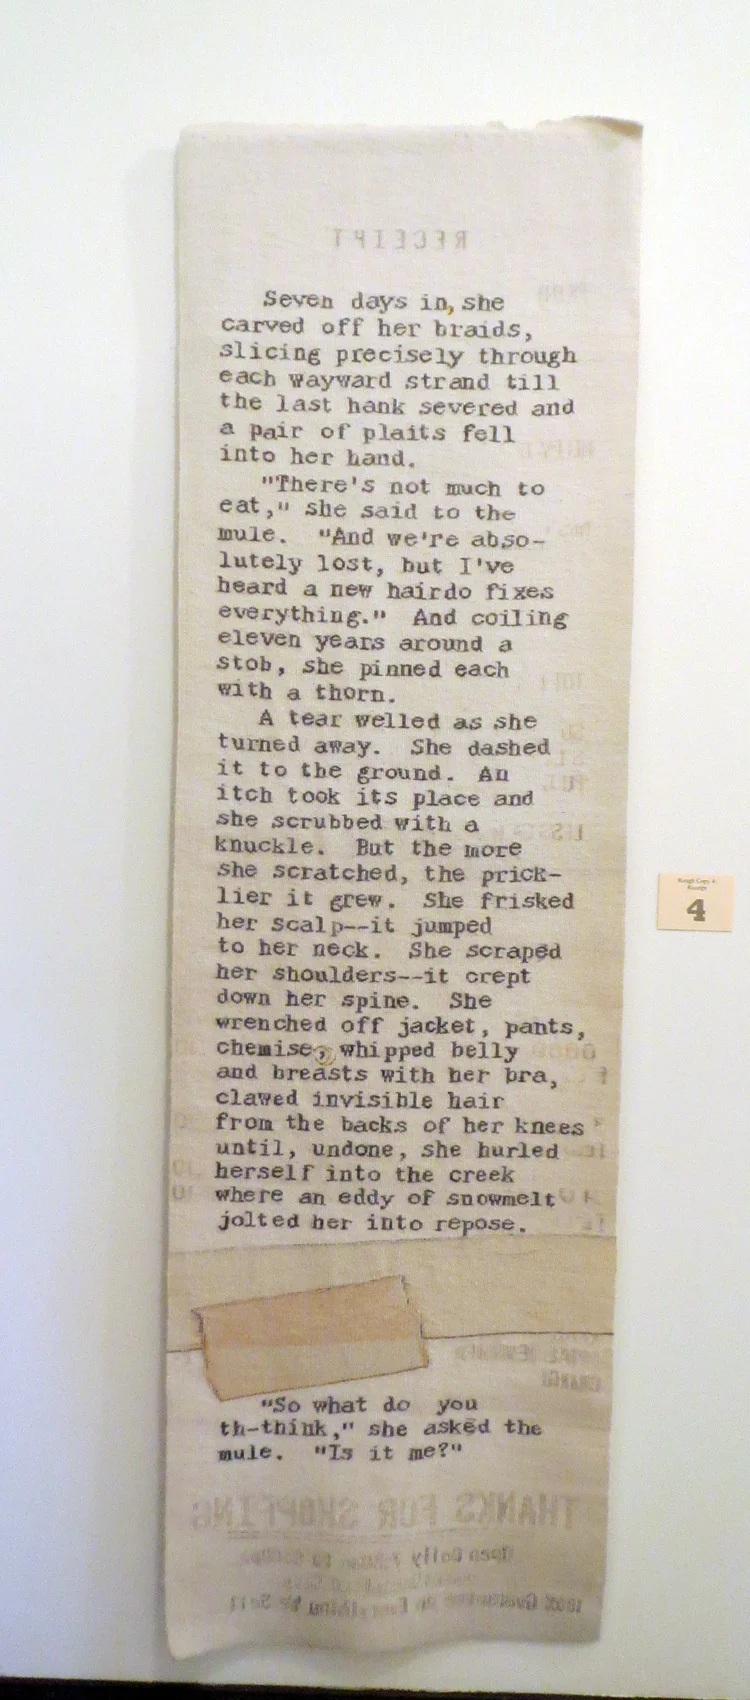 RECEIPT
Seven days in, she
carved off her braids,
slicing precisely through
each wayward strand till
the last hank severed and
a pair of plaits fell
into her hand.
"There's not much to
eat," she said to the
mule. "And we're abso-
lutely lost, but I've
heard a new hairdo fixes
everything." And coiling
eleven years around a
stob, she pinned each
with a thorn.
A tear welled as she
turned away. She dashed
it to the ground. An
itch took its place and
she scrubbed with a
knuckle. But the more
she scratched, the prick-
lier it grew. She frisked
her scalp--it jumped
to her neck. She scraped
her shoulders--it crept
down her spine. She
wrenched off jacket, pants,
chemise, whipped belly
and breasts with her bra,
clawed invisible hair
from the backs of her knees
until, undone, she hurled
herself into the creek
where an eddy of snowmelt
jolted her into repose.
CHANGE
"So what do you
th-think," she asked the
mule. "Is it me?"
THANKS FOR SHOPPING
Open Daily
100% Guarantee on Everything We Sell
Rough Copy 4:
Receipt
4